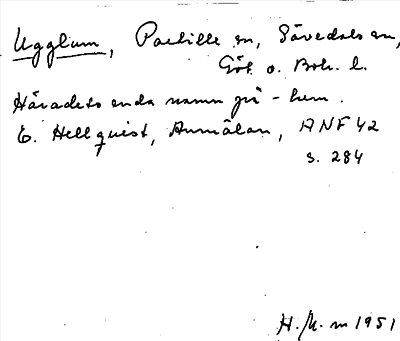 Ugglum, Partille sn, Sävedals hd,
Göt. o. Boh. l.
Häradets enda namn på -hem.
E. Hellquist, Anmälan, ANF 42
s. 284
H. 1951